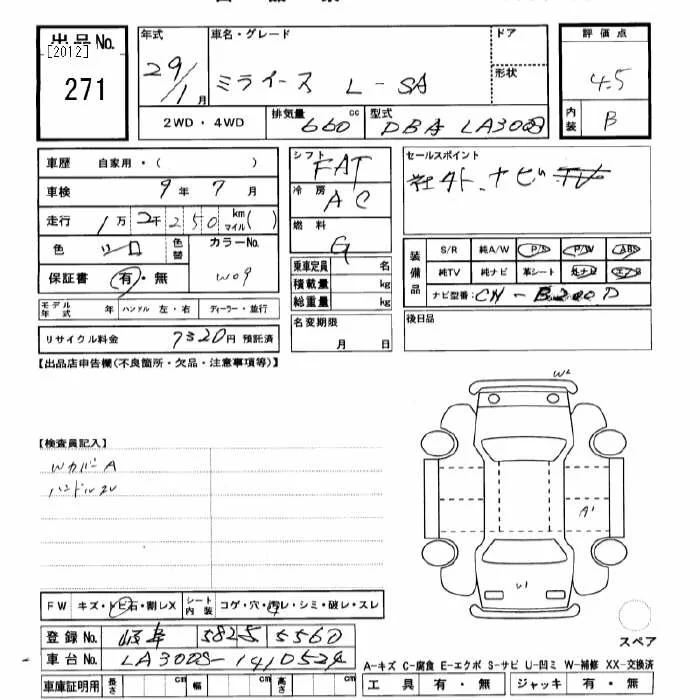 出品No.
[2012]
271
年式
29/1月
車名・グレード
ミライース L-SA
ドア
形状
2WD・4WD
排気量 660 cc
型式 DBA LA300S
評価点
4.5
内装 B
車歴 自家用・( )
車検 9年7月
走行 1万2千250 km マイル( )
色 シロ
色替
カラーNo. W09
保証書 有・無
モデル年式 年 ハンドル 左・右 ディーラー・並行
リサイクル料金 7320円 預託済
シフト FAT
冷房 AC
燃料 G
乗車定員 名
積載量 kg
総重量 kg
名変期限
月 日
セールスポイント
社外ナビ TV
装備品
S/R 純A/W P/S P/W ABS
純TV 純ナビ 革シート 社ナビ エアB
ナビ型番: CH-B200D
後日品
【出品店申告欄(不良箇所・欠品・注意事項等)】
W2
【検査員記入】
WカバーA
ハンドルスレ
A1
U1
FW キズ・トビ石・割レX シート内装 コゲ・穴・汚レ・シミ・破レ・スレ
スペア
登録No. 岐阜 582 5 5560
車台No. LA300S-1410524
A-キズ C-腐食 E-エクボ S-サビ U-凹ミ W-補修 XX-交換済
車庫証明用 長さ cm 幅 cm 高さ cm
工具 有・無 ジャッキ 有・無